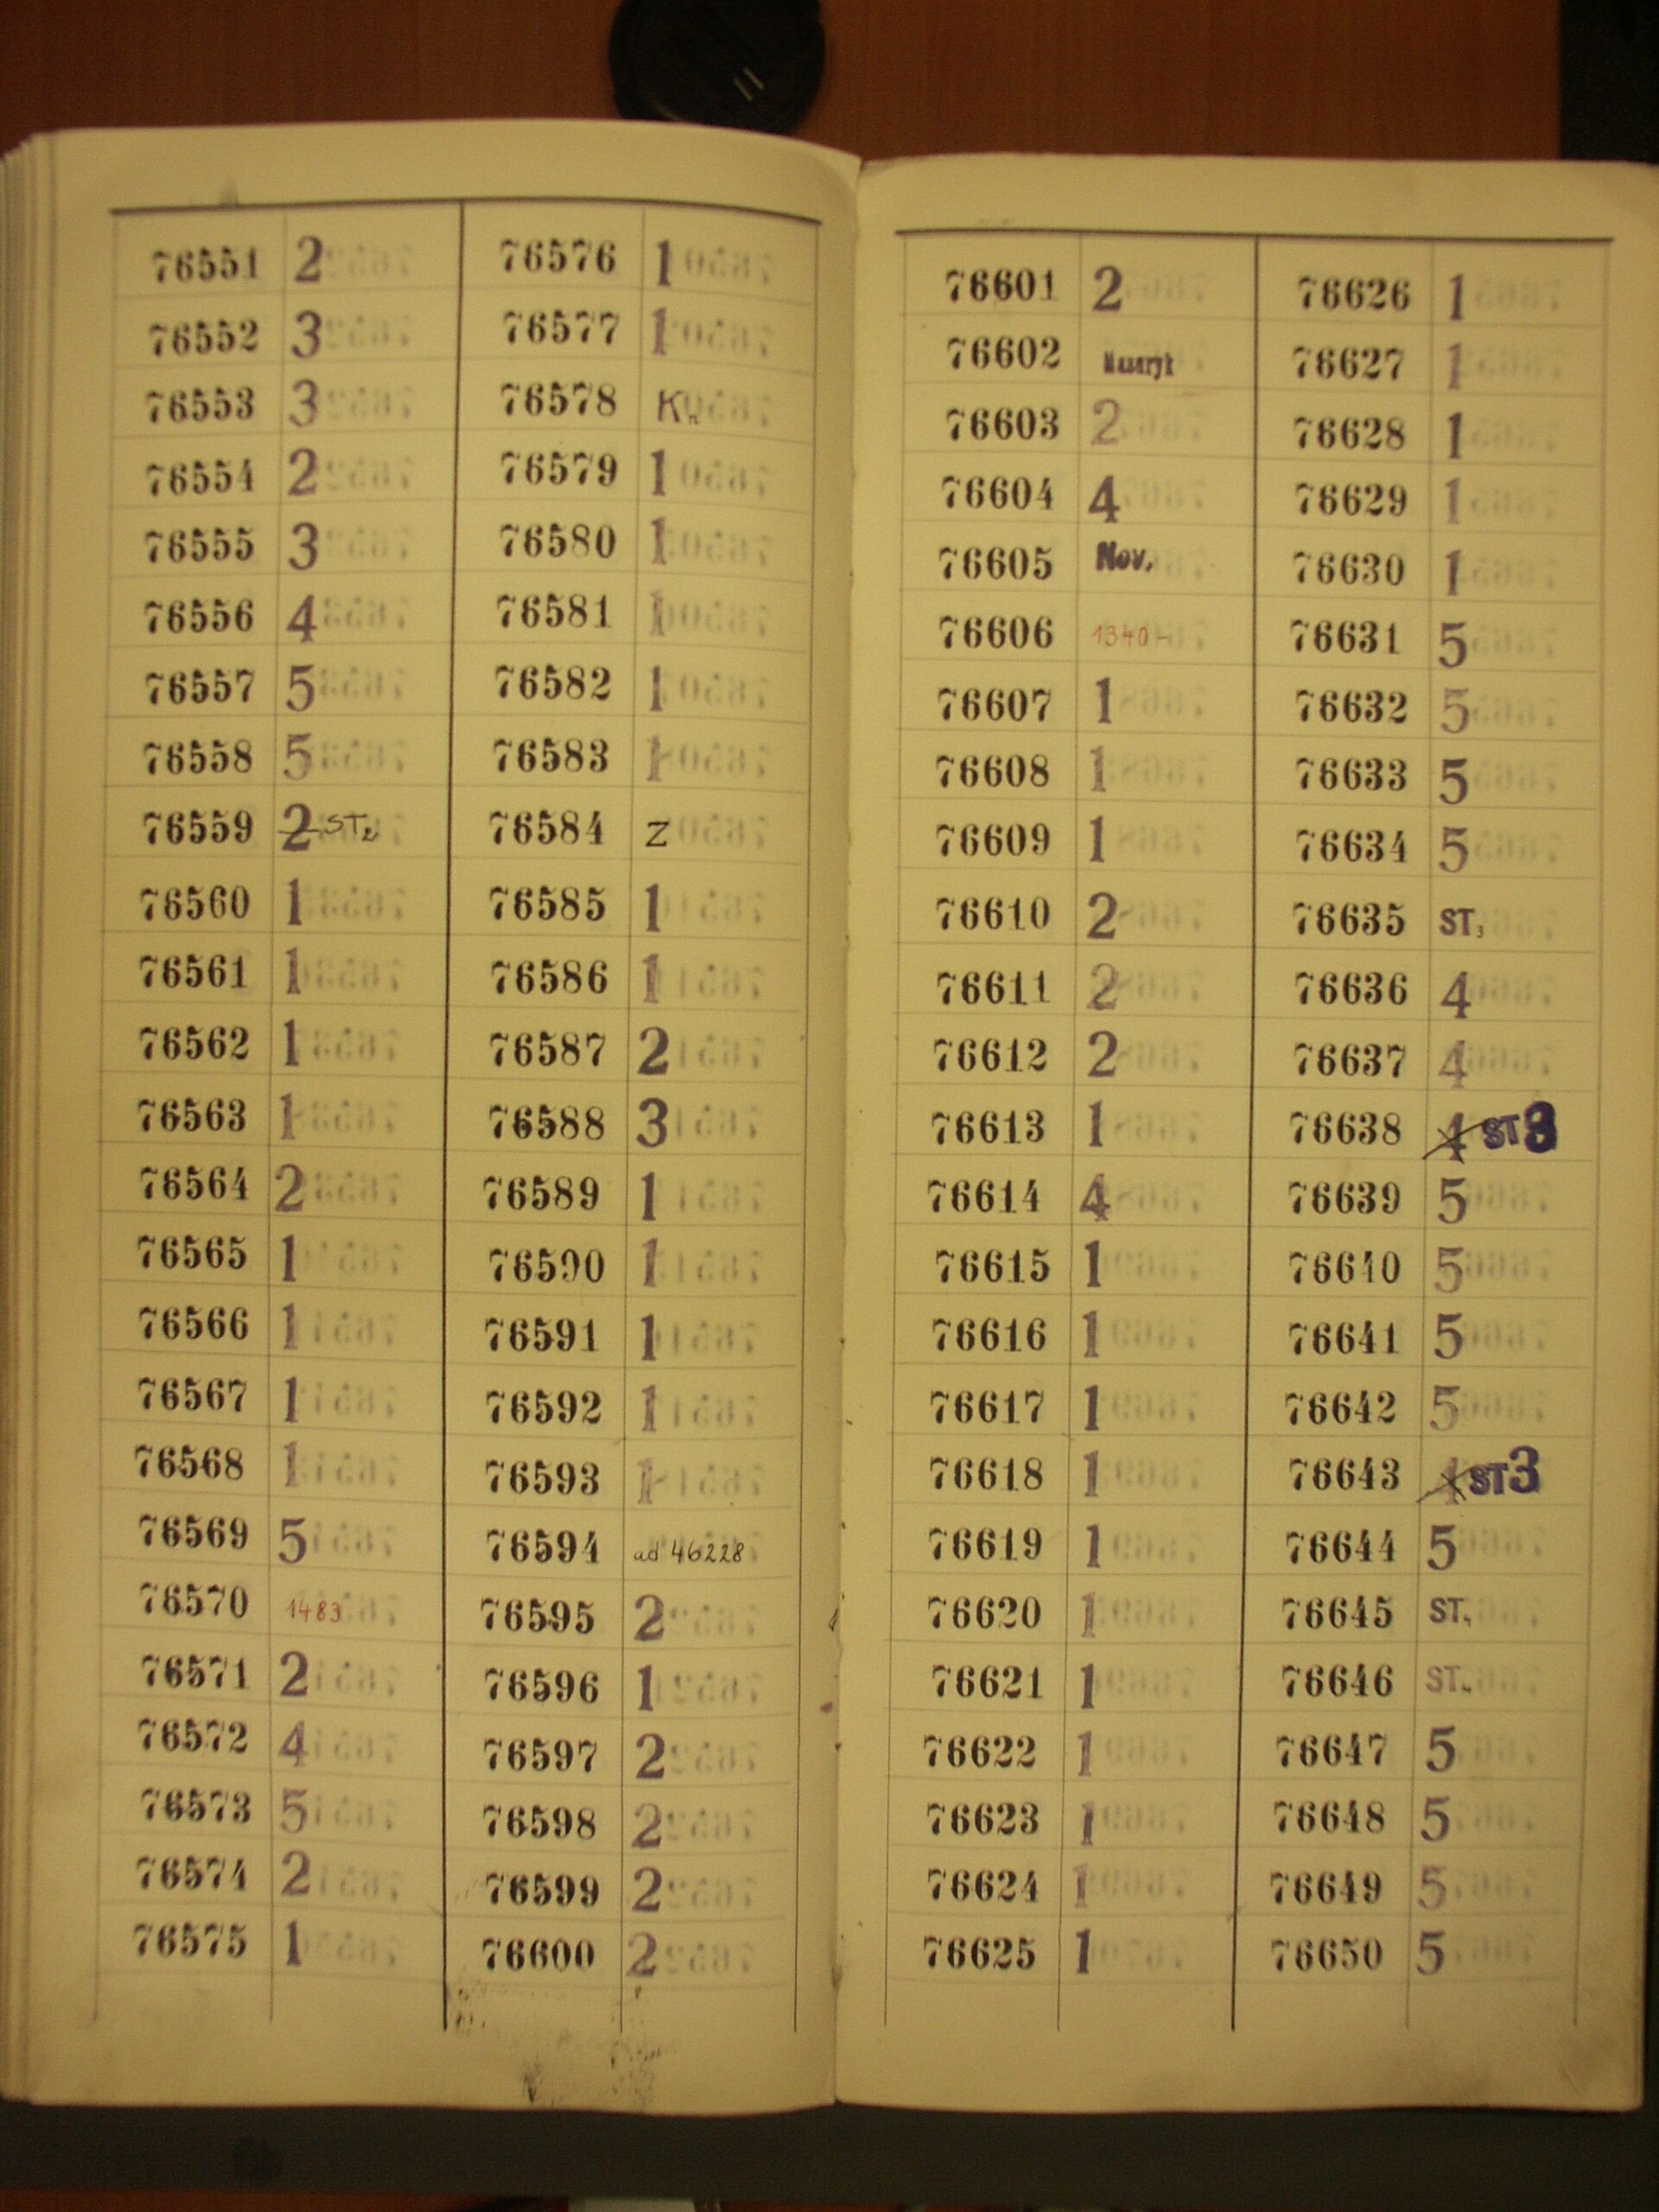 76551 2
76552 3
76553 3
76554 2
76555 3
76556 4
76557 5
76558 5
76559 2 ST2
76560 1
76561 1
76562 1
76563 1
76564 2
76565 1
76566 1
76567 1
76568 1
76569 5
76570 1483
76571 2
76572 4
76573 5
76574 2
76575 1
76576 1
76577 1
76578 Kn
76579 1
76580 1
76581 1
76582 1
76583 1
76584 Z
76585 1
76586 1
76587 2
76588 3
76589 1
76590 1
76591 1
76592 1
76593 1
76594 ad 46228
76595 2
76596 1
76597 2
76598 2
76599 2
76600 2
76601 2
76602 Masaryk
76603 2
76604 4
76605 Nov.
76606 1340-
76607 1
76608 1
76609 1
76610 2
76611 2
76612 2
76613 1
76614 4
76615 1
76616 1
76617 1
76618 1
76619 1
76620 1
76621 1
76622 1
76623 1
76624 1
76625 1
76626 1
76627 1
76628 1
76629 1
76630 1
76631 5
76632 5
76633 5
76634 5
76635 ST3
76636 4
76637 4
76638 4 ST3
76639 5
76640 5
76641 5
76642 5
76643 4 ST3
76644 5
76645 ST
76646 ST
76647 5
76648 5
76649 5
76650 5